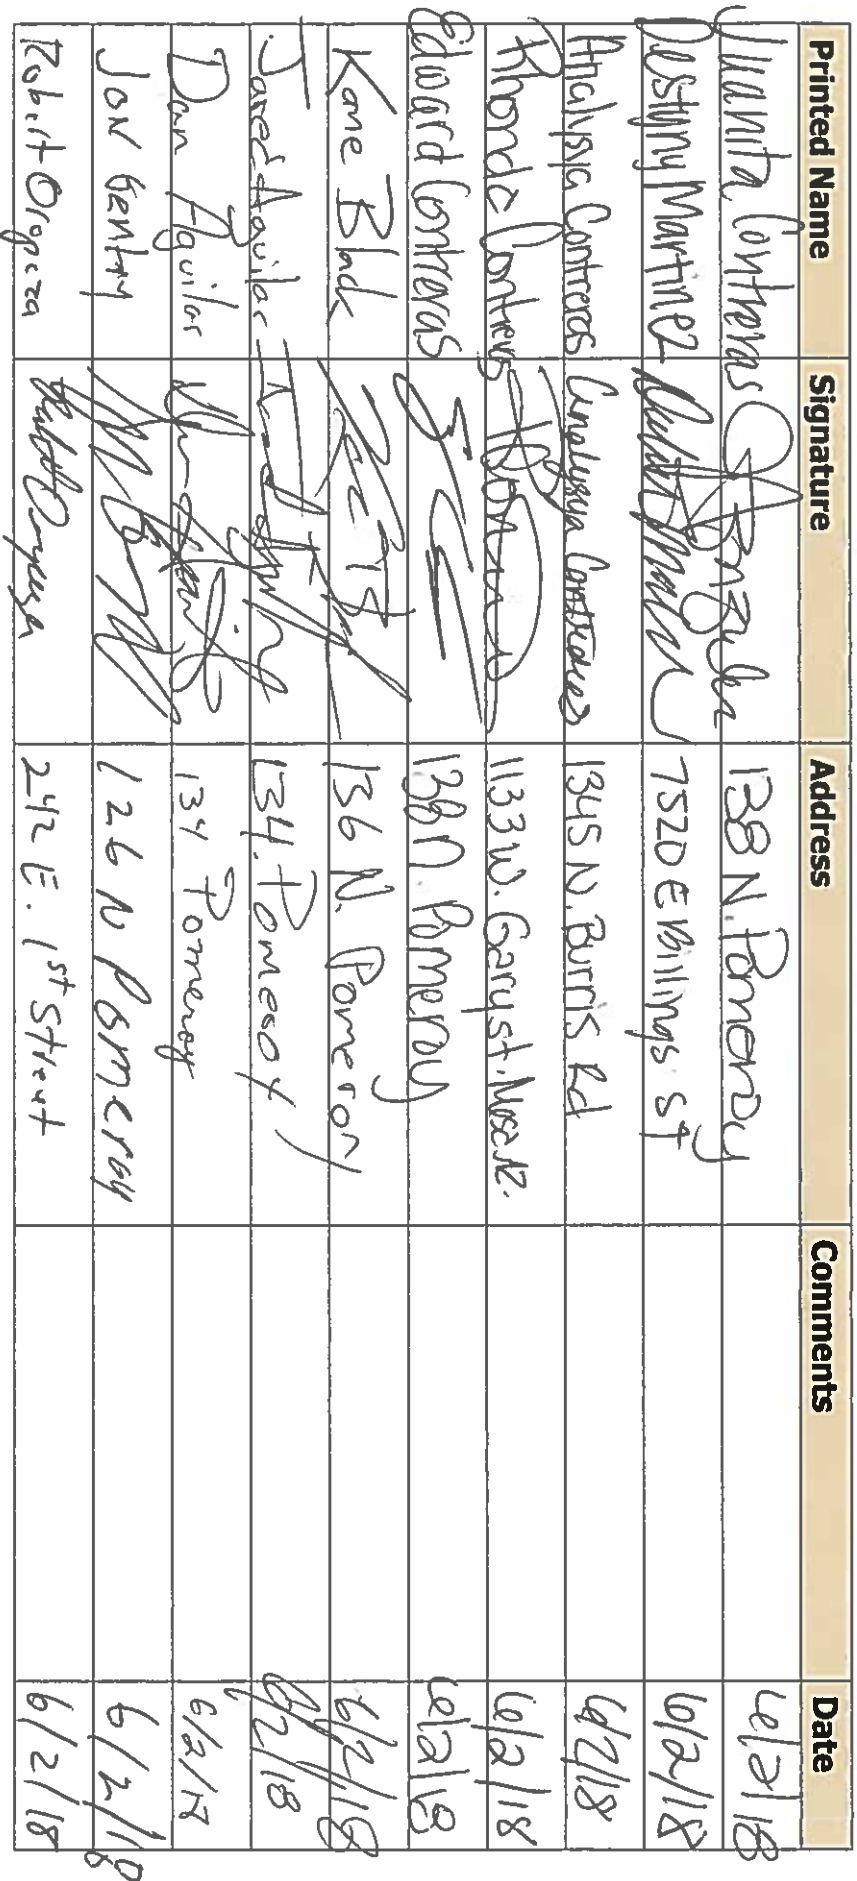 Printed Name Signature Address Comments Date
Juanita Contreras 138 N. Pomeroy 6/2/18
Destyny Martinez 7520 E Billings St 6/2/18
Analysia Contreras Analysia Contreras 1345 N. Burris Rd 6/2/18
Rhonda Contreras 1133 W. Gary St. Mesa AZ. 6/2/18
Edward Contreras EC 138 N. Pomeroy 6/2/18
Kane Black 136 N. Pomeroy 6/2/18
Jared Aguilar 134. Pomeroy 6/2/18
Dan Aguilar 134 Pomeroy 6/2/18
Jon Gentry 126 N Pomeroy 6/2/18
Robert Oropeza Robert Oropeza 242 E. 1st Street 6/2/18